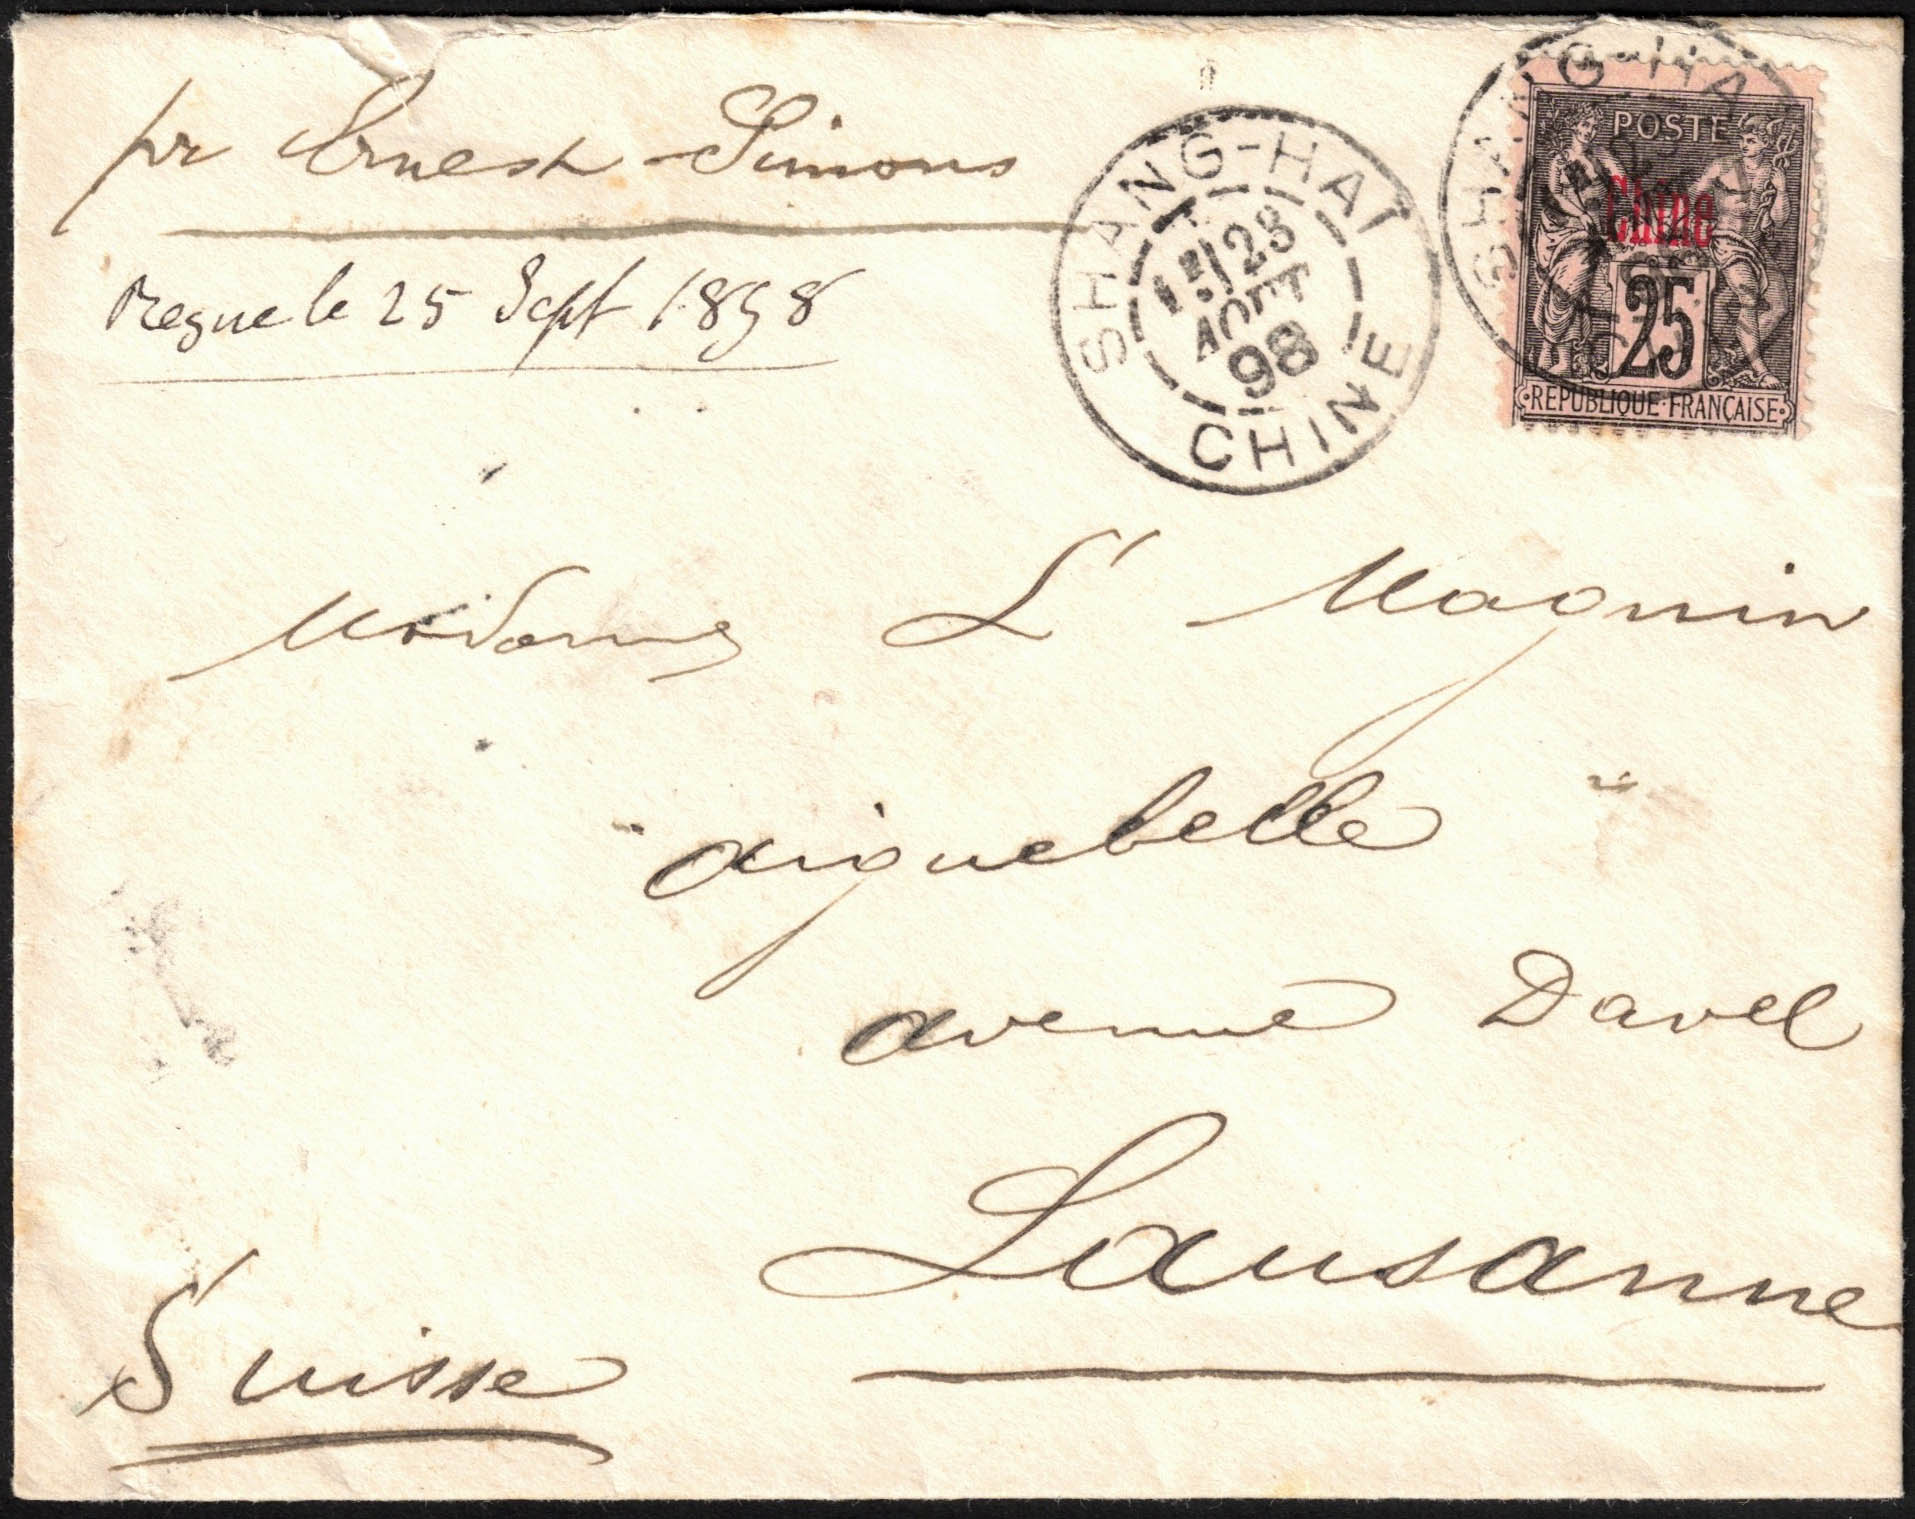 pr Ernest-Simons
Reçue le 25 Sept 1898
SHANG-HAÏ
23
AOUT
98
CHINE
SHANG-HAÏ
POSTE
Chine
25
REPUBLIQUE·FRANÇAISE
Madame L' Magnin
Aiguebelle
avenue Davel
Lausanne
Suisse